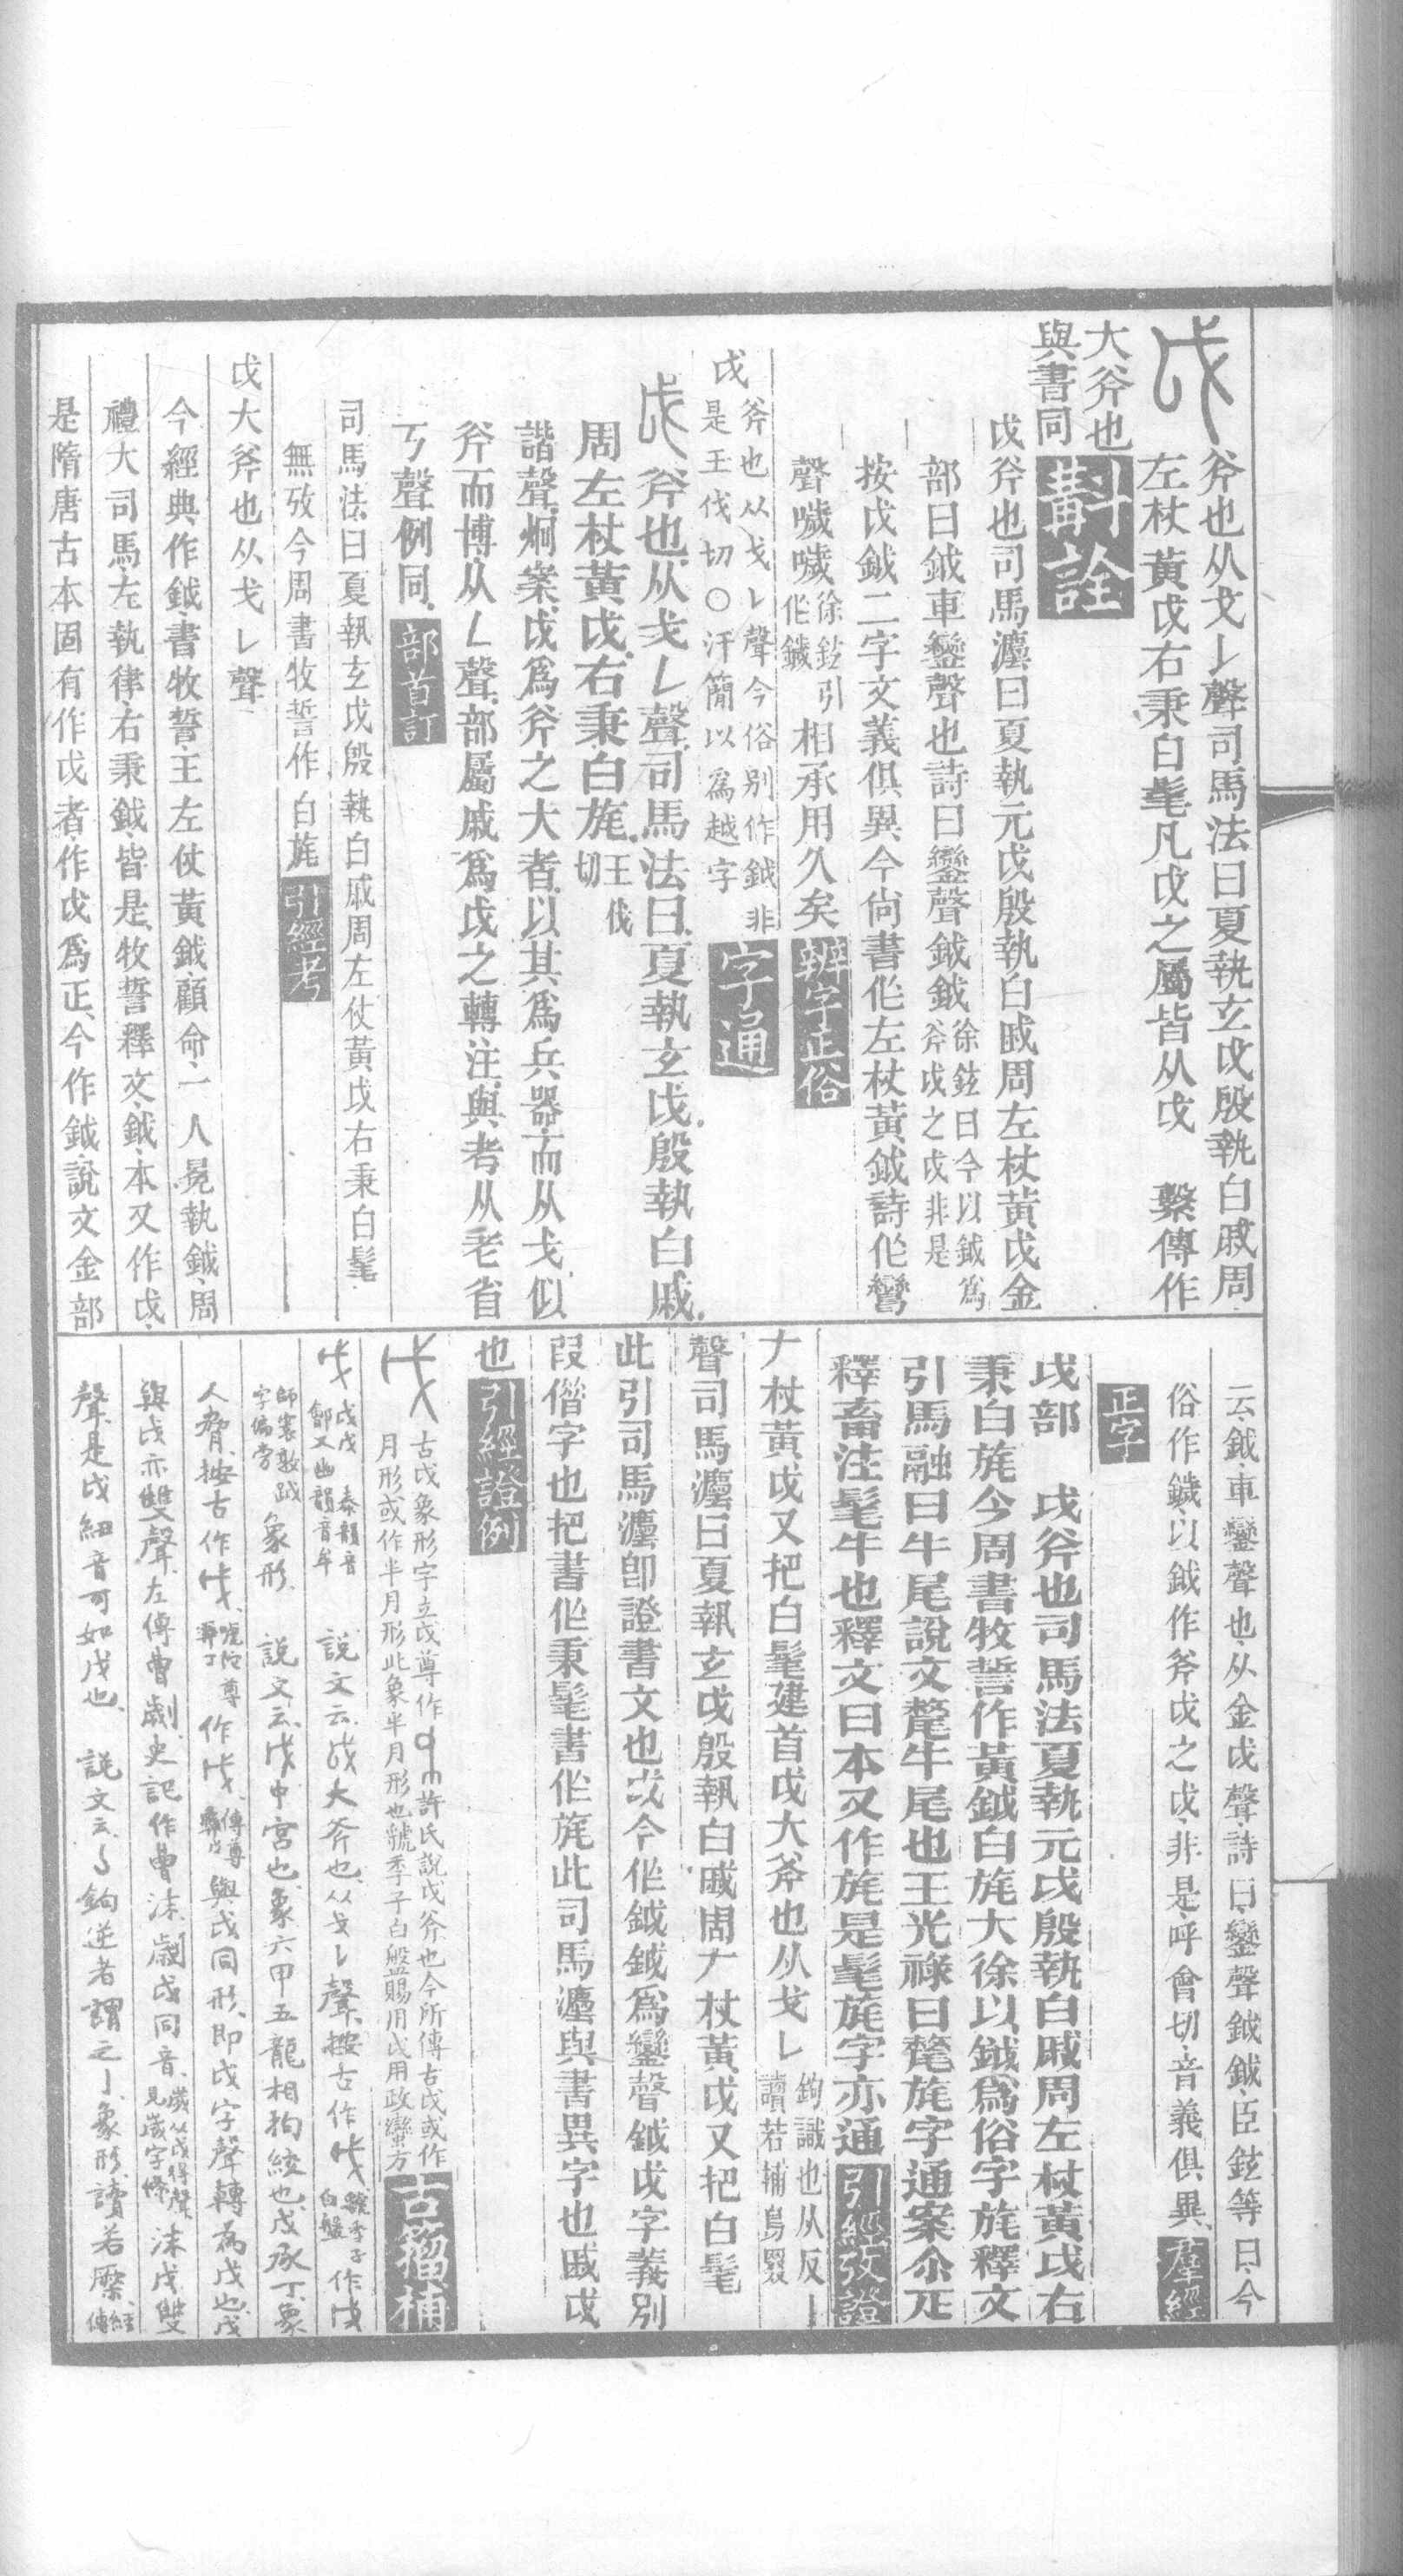 戉 斧也从戈𠄌聲司馬法曰夏執玄戉殷執白戚周
左杖黃戉右秉白髦凡戉之屬皆从戉　繫傳作
大斧也
與書同 斠詮
戉斧也司馬灋曰夏執元戉殷執白戚周左杖黃戉金
部曰鉞車鑾聲也詩曰鑾聲鉞鉞徐鉉曰今以鉞爲斧戉之戉非是
按戉鉞二字文義俱異今尙書作左杖黃鉞詩作鸞
聲噦噦徐鉉引作鐬相承用久矣 辨字正俗
戉斧也从戈𠄌聲今俗別作鉞非是王伐切○汗簡以爲越字 字通
戉 斧也从戈𠄌聲司馬法曰夏執玄戉殷執白戚
周左杖黃戉右秉白旄王伐切
諧聲烱案戉爲斧之大者以其爲兵器而从戈似
斧而博从𠄌聲部屬戚爲戉之轉注與考从老省
丂聲例同 部首訂
司馬法曰夏執玄戉殷執白戚周左仗黃戉右秉白髦
無攷今周書牧誓作白旄 引經考
戉大斧也从戈𠄌聲
今經典作鉞書牧誓王左仗黃鉞顧命一人冕執鉞周
禮大司馬左執律右秉鉞皆是牧誓釋文鉞本又作戉
是隋唐古本固有作戉者作戉爲正今作鉞說文金部
云鉞車鑾聲也从金戉聲詩曰鑾聲鉞鉞臣鉉等曰今
俗作鐬以鉞作斧戉之戉非是呼會切音義俱異 羣經
正字
戉部　戉斧也司馬法夏執元戉殷執白戚周左杖黃戉右
秉白旄今周書牧誓作黃鉞白旄大徐以鉞爲俗字旄釋文
引馬融曰牛尾說文氂牛尾也王光祿曰氂旄字通案尒疋
釋畜注髦牛也釋文曰本又作旄是髦旄字亦通 引經攷證
𠂇杖黃戉又把白髦建首戉大斧也从戈𠄌鉤識也从反亅讀若捕鳥罬
聲司馬灋曰夏執玄戉殷執白戚周𠂇杖黃戉又把白髦
此引司馬灋卽證書文也戉今作鉞鉞爲鑾聲鉞戉字義別
叚借字也把書作秉髦書作旄此司馬灋與書異字也戚戉
也 引經證例
戉 古戉象形字立戉尊作許氏說戉斧也今所傳古戉或作
月形或作半月形此象半月形也虢季子白盤賜用戉用政蠻方 古籀補
說文云戉大斧也从戈𠄌聲按古作戉虢季子白盤作戉
象形　說文云戊中宮也象六甲五龍相拘絞也戊承丁象
人脅按古作戊作戊與戉同形卽戉字聲轉爲戊也戊
與戉亦雙聲左傳曹劌史記作曹沬劌戉同音歲从戉得聲見歲字條沬戊雙
聲是戉紐音可如戊也　說文云亅鉤逆者謂之亅象形讀若橜